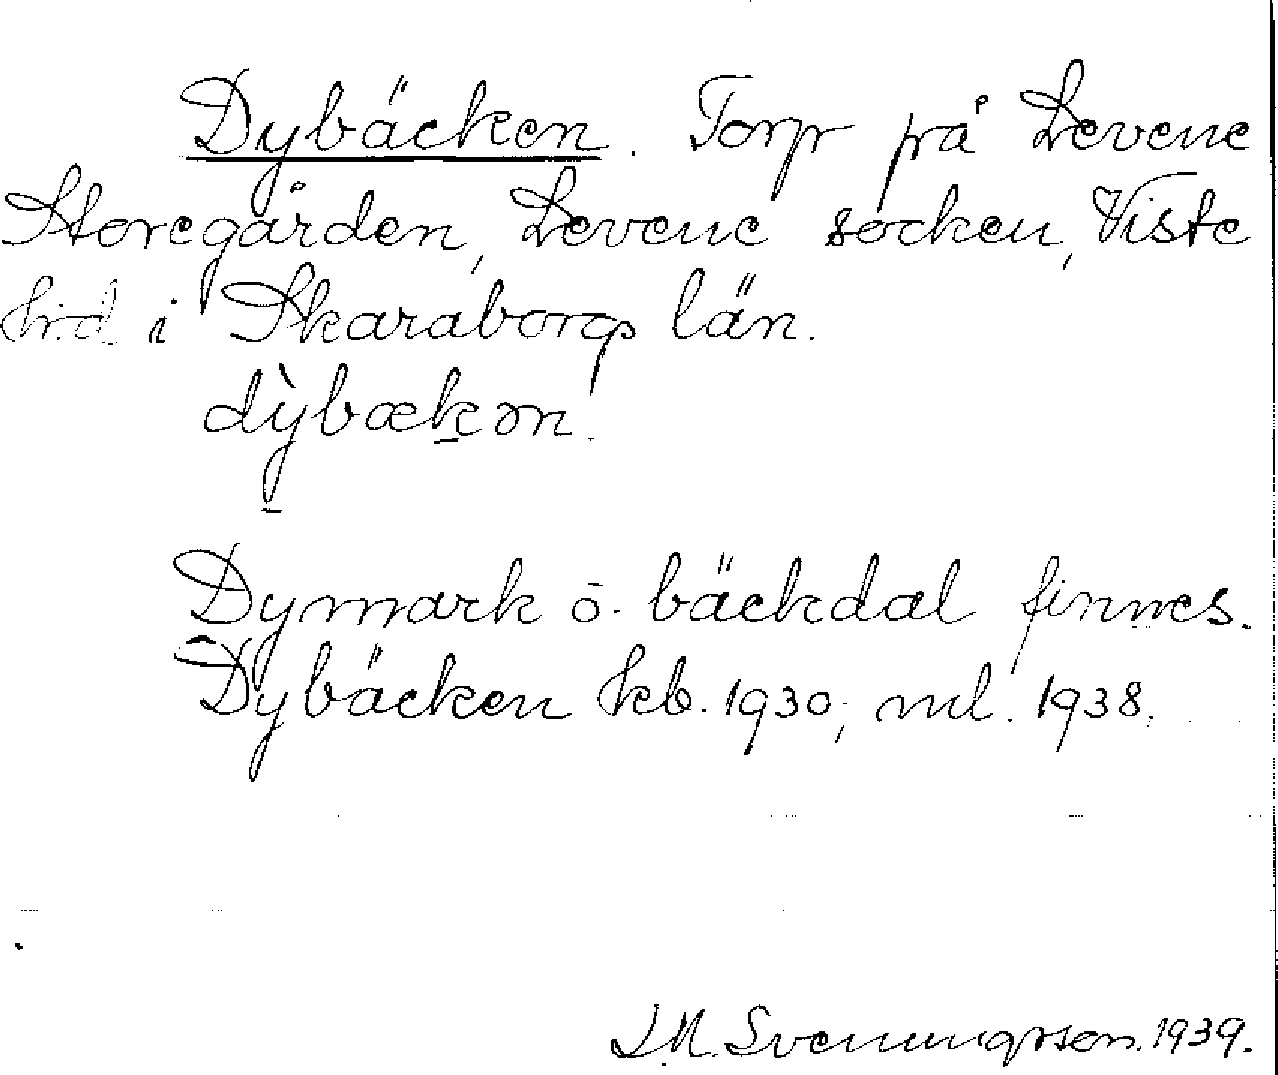 Dybäcken. Torp på Levene
Storegården, Levene socken, Viste
hrd i Skaraborgs län.
dỳbækən.
Dymark o. bäckdal finnes.
Dybäcken kb. 1930; ml. 1938.
J.M. Svenungsson. 1939.